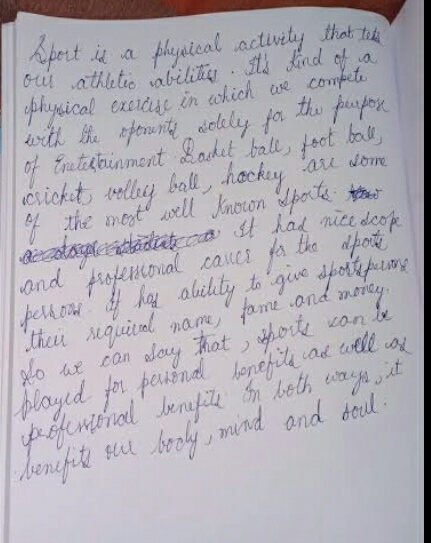 Sport is a physical activity that tells
our athletic abilities. It's kind of a
physical exercise in which we compete
with the oponents solely for the purpose
of Enetertainment Basket ball, foot ball,
cricket, volley ball, hockey are some
of the most well known sports.
It had nice scope
and professional career for the sports
persons. It has ability to give sportspersons
their required name, fame and money.
So we can say that, sports can be
played for personal benefits as well as
professional benefits. In both ways, it
benefits our body, mind and soul.